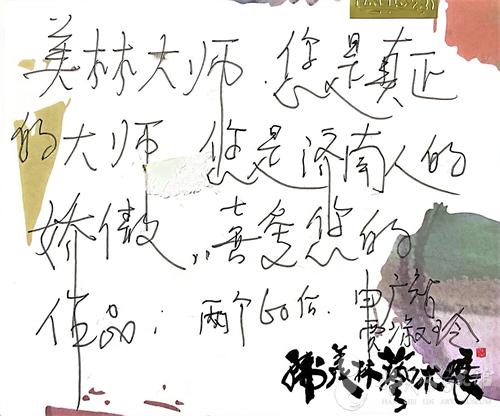 美林大师.您是真正
的大师 您是济南人的
娇傲,,喜爱您的
作品; 两个60后.
韩美林艺术展